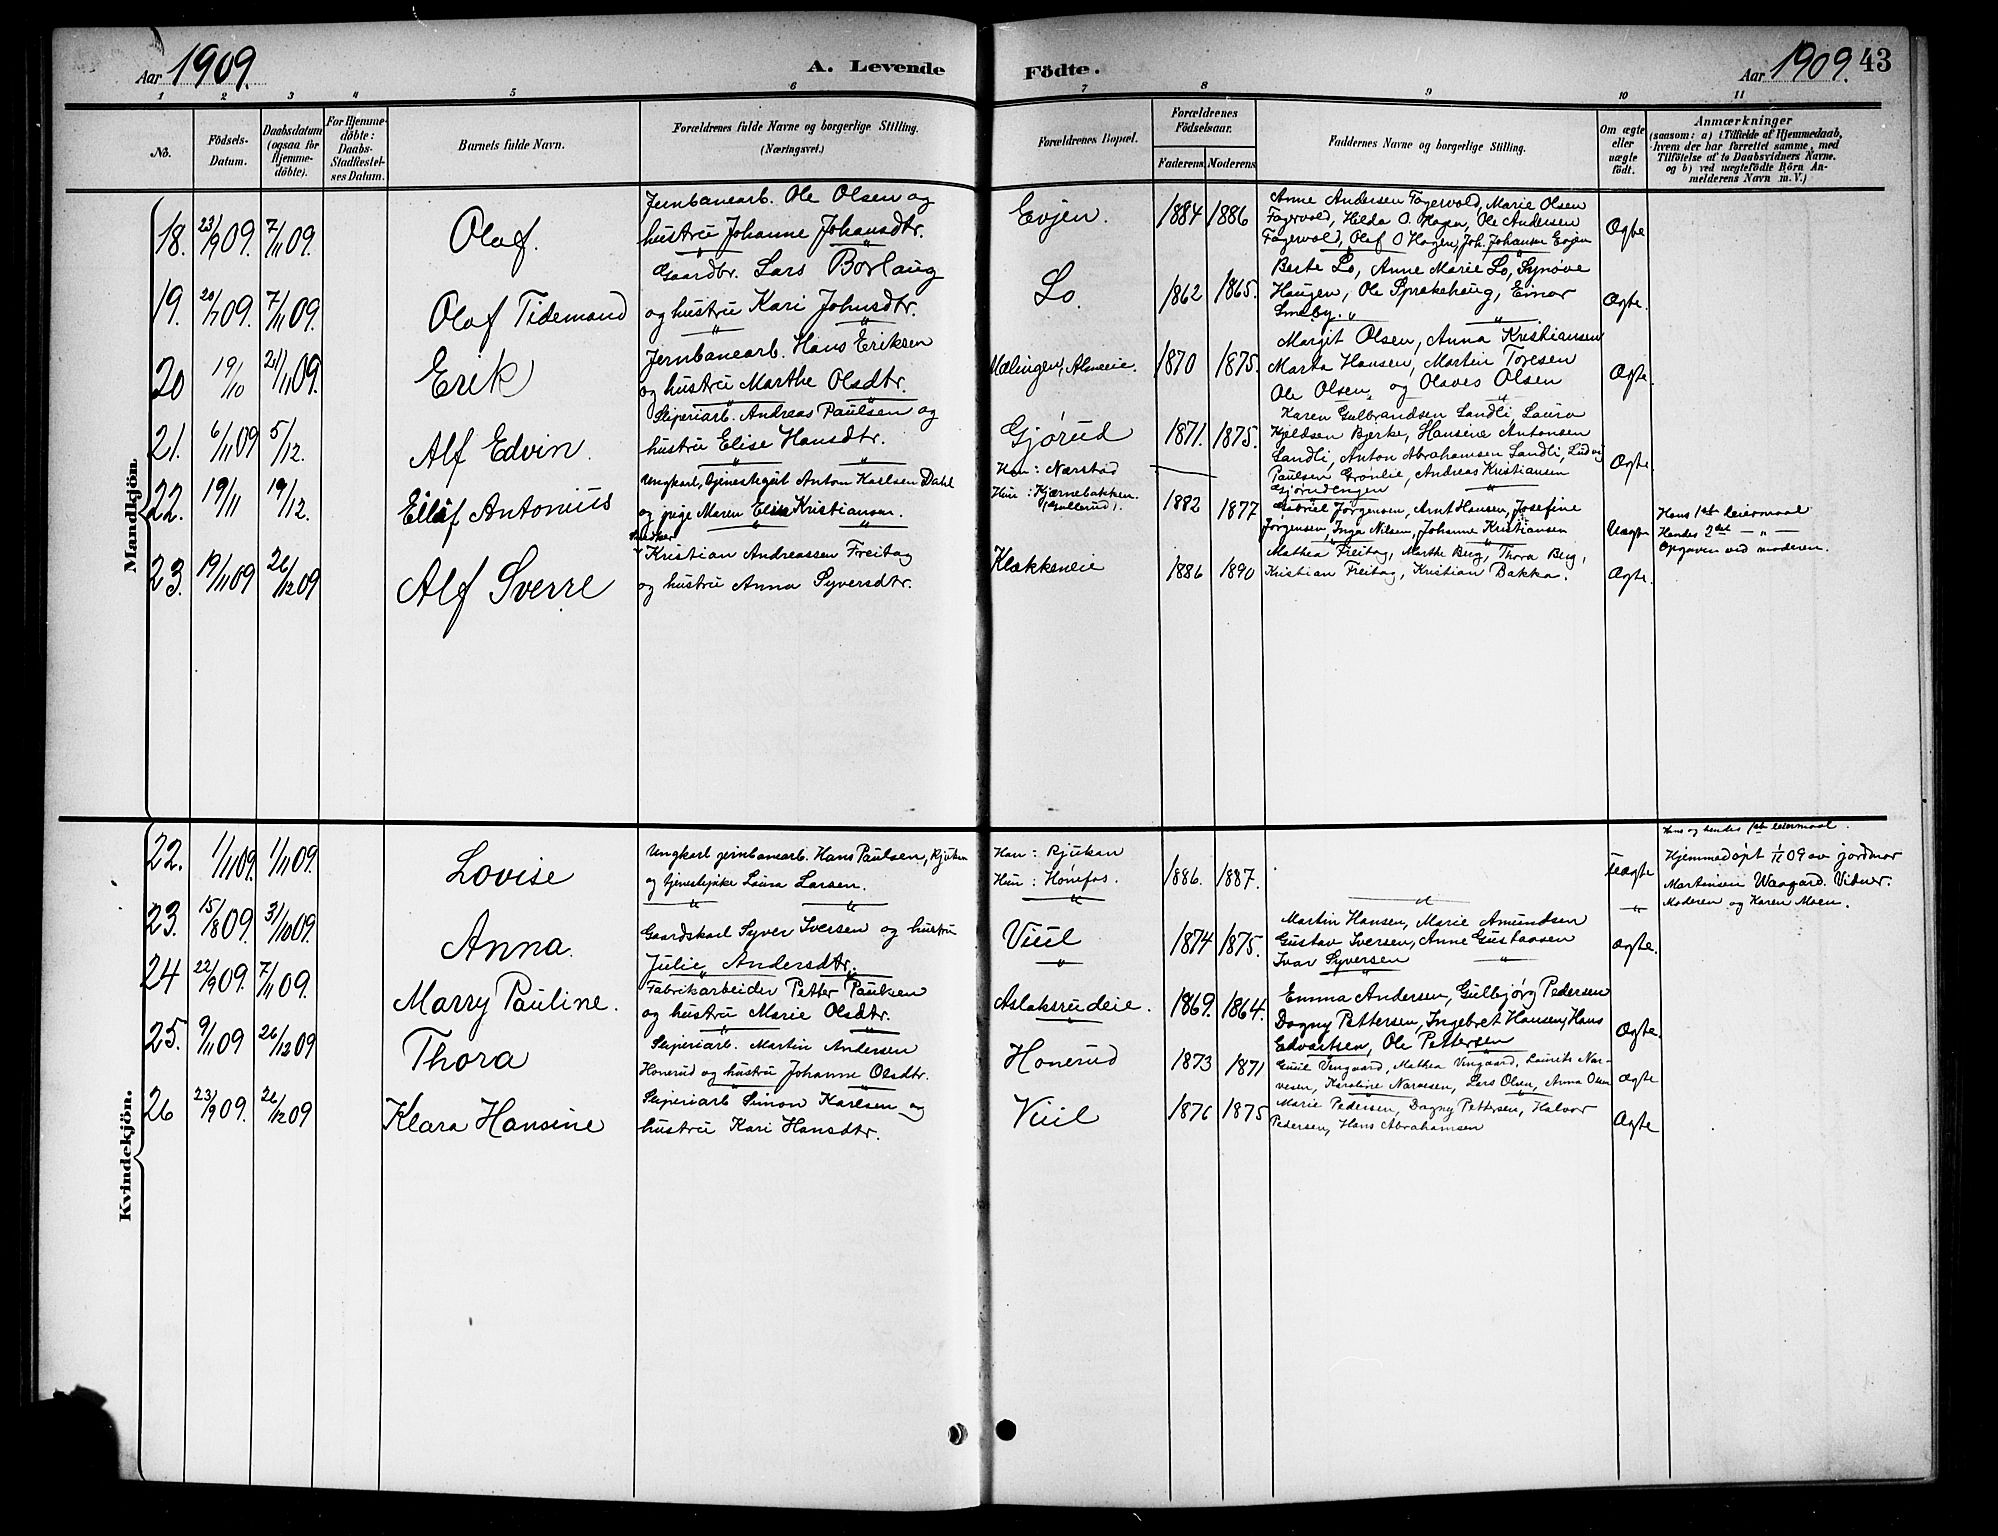 Aar 1909.
A. Levende Födte.
Aar 1909. 43
1 2 3 4 5 6 7 8 9 10 11
No.
Födsels-
Datum.
Daabsdatum
(ogsaa for
Hjemme-
döbte).
For Hjemme-
döbte:
Daabs-
Stadfæstel-
ses Datum.
Barnets fulde Navn.
Forældrenes fulde Navne og borgerlige Stilling.
(Næringsvei.)
Forældrenes Bopæl.
Forældrenes
Födselsaar.
Faderens. Moderens.
Faddernes Navne og borgerlige Stilling.
Om ægte
eller
uægte
födt.
Anmærkninger
(saasom: a) i Tilfælde af Hjemmedaab,
hvem der har forrettet samme, med
Tilföielse af to Daabsvidners Navne.
og b) ved uægtefödte Börn An-
melderens Navn m. V.)
Mandkjön.
18. 23/9 09. 7/11 09. Olaf.
Jernbanearb. Ole Olsen og
hustru Johanne Johansdtr.
Evjen. 1884 1886
Anne Andersen Fagervold, Marie Olsen
Fagervold, Hilda O. Hagen, Ole Andersen
Fagervold, Olaf O Hagen, Joh. Johansen Evjen
Ægte
19. 20/7 09. 7/11 09. Olaf Tidemand
Gaardbr. Lars Borlaug
og hustru Kari Johnsdtr.
Lo. 1862 1865.
Berte Lo, Anne Marie Lo, Synøve
Haugen, Ole Sprakehaug, Einar
Smeby.
Ægte.
20 19/10 21/11 09. Erik
Jernbanearb. Hans Eriksen
og hustru Marthe Olsdtr.
Mælingen, Almeie. 1870 1875.
Margit Olsen, Anna Kristiansen
Marta Hansen, Martin Toresen
Ole Olsen, og Olaves Olsen
Ægte.
21. 6/11 09 5/12. Alf Edvin.
Sliperiarb. Andreas Paulsen og
hustru Elise Hansdtr.
Gjørud 1871. 1875.
Karen Gulbrandsen Sandli, Laura
Kjeldsen Bjerke, Hansine Antonsen
Sandli, Anton Abrahamsen Sandli, Ludvig
Paulsen Grønlie, Andreas Kristiansen
Gjørudengen
Ægte.
22. 19/11 19/12. Eilif Antonius
Ungkarl, tjenestegut Anton Karlsen Dahl
og pige Maren Elise Kristiansen.
Han: Nærstad
Hun: Kjærnebakken.
(Gullerud).
1882 1877
Gabriel Jørgensen, Arnt Hansen, Josefine
Jørgensen, Inga Nilsen, Johanne Kristiansen
Uægte
Hans 1ste leiermaal
Hendes 2det — „ —
Opgaven ved moderen.
23. 19/11 09 26/12 09 Alf Sverre
Kristian Andreassen Freitag
og hustru Anna Syversdtr.
Klækkeneie 1886 1890
Mathea Freitag, Marthe Berg, Thora Berg,
Kristian Freitag, Kristian Bakka.
Ægte.
Kvindekjön.
22. 1/11 09. 1/11 09. Lovise
Ungkarl jernbanearb. Hans Paulsen, Rjukan
og tjenestepike Laura Larsen.
Han: Rjukan
Hun: Hønefos.
1886. 1887.
Uægte
Hans og hendes 1ste leiermaal.
Hjemmedøpt 1/11 09 av jordmor
Martinsen Waagard. Vidner.
Moderen og Karen Moen.
23. 15/8 09. 31/10 09. Anna.
Gaardskarl Syver Iversen og hustru
Julie Andersdtr.
Viul 1874 1875.
Martin Hansen, Marie Amundsen
Gustav Iversen, Anne Gustavsen
Ivar Syversen
Ægte.
24 22/9 09. 7/11 09. Marry Pauline.
Fabrikarbeider Petter Paulsen
og hustru Marie Olsdtr.
Aslaksrudeie. 1869. 1864.
Emma Andersen, Gulbjørg Pedersen
Dagny Pettersen, Ingebret Hansen, Hans
Edvartsen, Ole Pettersen
Ægte.
25. 9/11 09 26/12 09 Thora
Sliperiarb. Martin Andersen
Honerud og hustru Johanne Olsdtr.
Honerud 1873 1871
Guul Vengaard, Mathea Vengaard, Laurits Nar-
vesen, Karoline Narvesen, Lars Olsen, Anna Olsen
Ægte
26 23/9 09. 26/12 09 Klara Hansine
Sliperiarb Simon Karlsen og
hustru Kari Hansdtr.
Viul 1876 1875
Marie Pedersen, Dagny Pettersen, Halvor
Pedersen, Hans Abrahamsen
Ægte